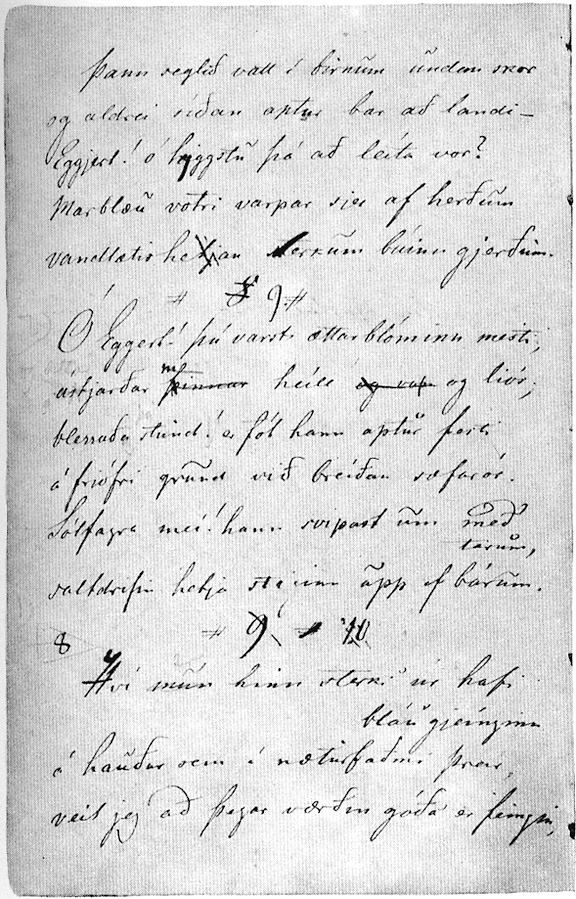 Þann seglið vatt í birnum ündan skor
og aldrei síðan aptur bar að landi –
Eggjert! ó hyggstü þá að leíta vor?
Marblæü votri varpar sjer af herðum
vandlætishetjan sterkum búinn gjerðum.
# 9. #
Ó Eggert! þú varst ættarblóminn mesti,
ástjarðar minnar heill og liós;
blessaða stünd! er fót hann aptür festi
á frióvri gründ við breíðan sæfarós.
Sólfagra meí! hann svipast üm með
tárüm,
saltdrifin hetja stiginn üpp af bárüm.
8 # 9 # 10
Hví mün hinn sterki úr hafi
bláü gjeínginn
á haüður sem í nætürfaðmi þreir,
veit jeg að þegar værðin góða er feíngin,